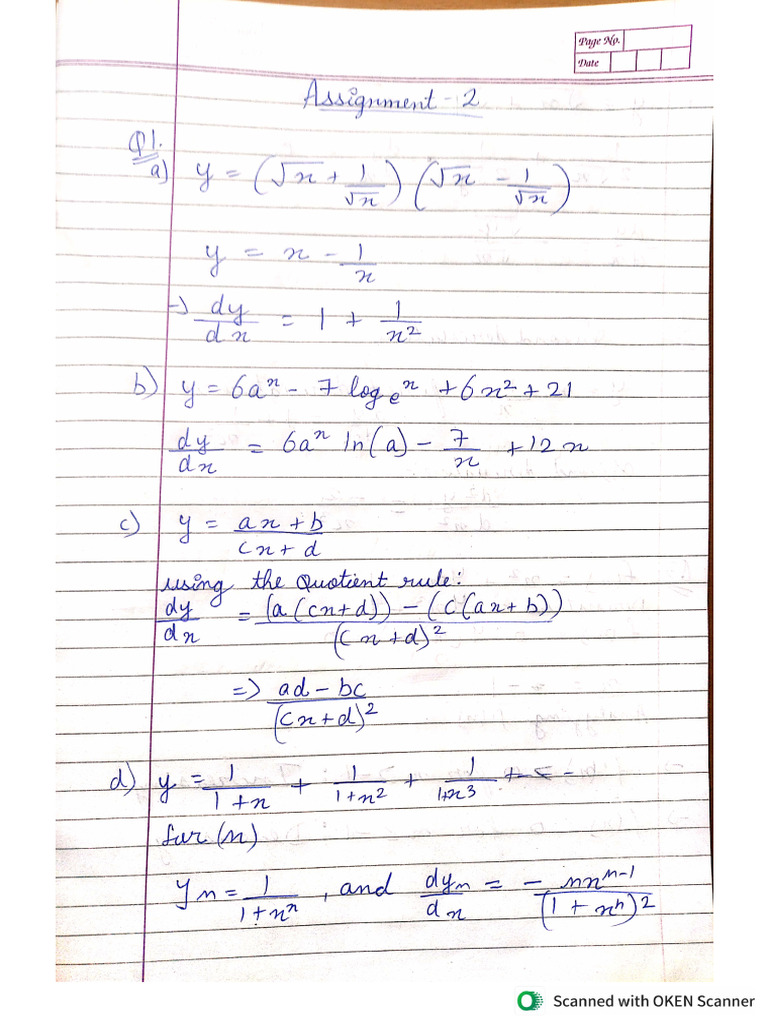 Page No.
Date
Assignment - 2
Q1.
a) y = (√x + 1/√x) (√x - 1/√x)
y = x - 1/x
→ dy/dx = 1 + 1/x²
b) y = 6aˣ - 7 logₑˣ + 6x² + 21
dy/dx = 6aˣ ln(a) - 7/x + 12x
c) y = (ax + b)/(cx + d)
using the Quotient rule:
dy/dx = ((a(cx+d)) - (c(ax+b)))/(cx+d)²
=> (ad - bc)/(cx+d)²
d) y = 1/(1+x) + 1/(1+x²) + 1/(1+x³) +
for (n)
yₙ = 1/(1+xⁿ) , and dyₙ/dx = - nxⁿ⁻¹/(1+xⁿ)²
Scanned with OKEN Scanner